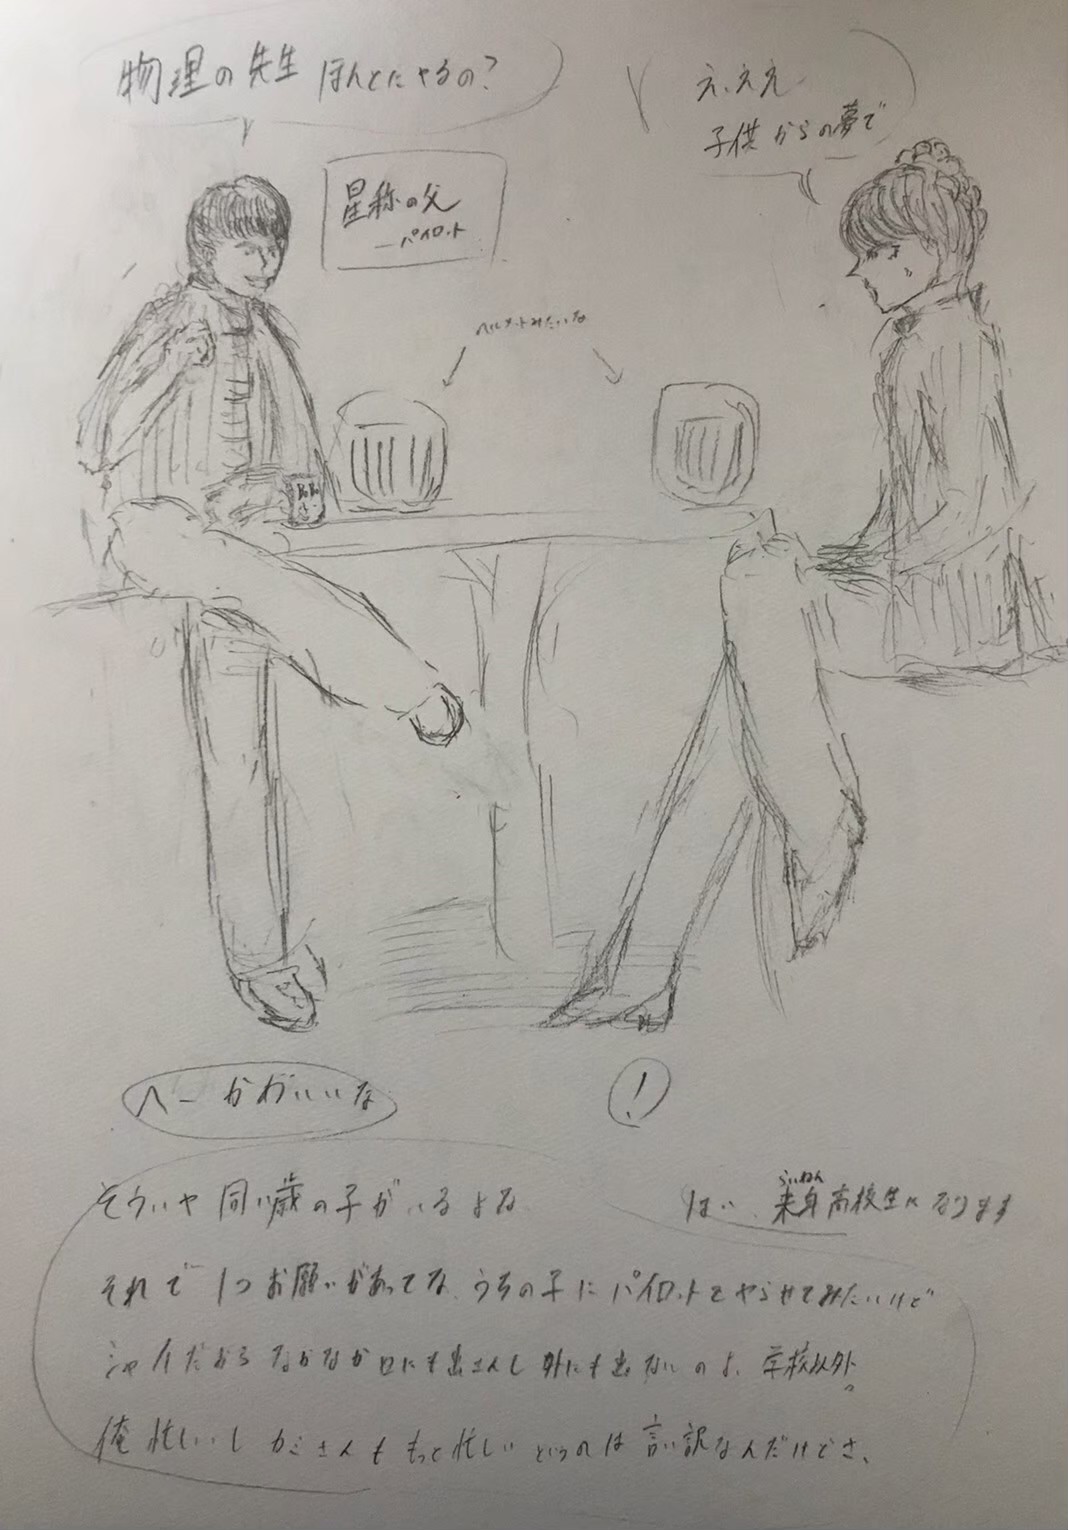 物理の先生 ほんとにやるの?
え、ええ
子供からの夢で
星称の父
―パイロット
ヘルメットみたいな
へー かわいいな
!
そういや 同い歳の子がいるよな
らいねん
はい、来身高校生になります
それで 1つお願いがあってな、うちの子にパイロットをやらせてみたいけど
シャイだから なかなか口にも出さんし 外にも出ないのよ、学校以外。
俺 忙しいし カミさんも もっと忙しい というのは 言い訳なんだけどさ、